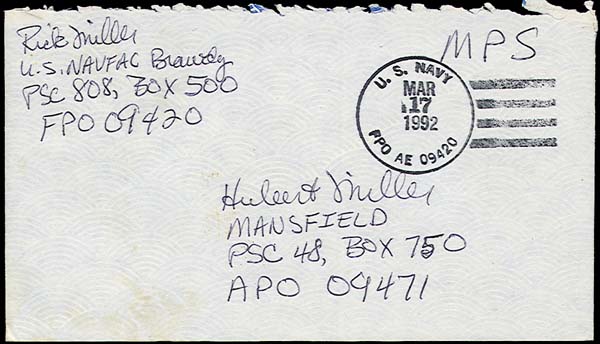 Rick Miller
U.S. NAVFAC Brawdy
PSC 808, BOX 500
FPO 09420
MPS
U. S. NAVY
MAR
17
1992
FPO AE 09420
Hubert Miller
MANSFIELD
PSC 48, BOX 750
APO 09471